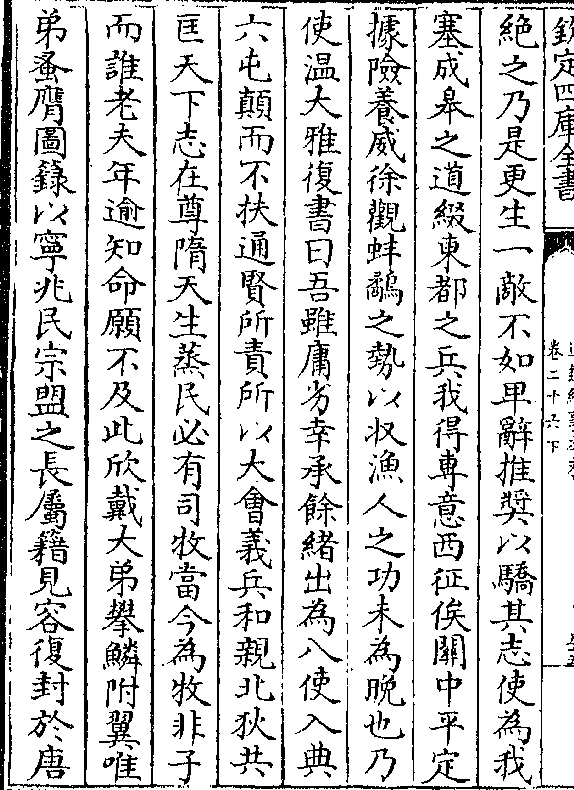 欽定四庫全書
卷二十六下
絶之乃是更生一敵不如卑辭推奬以驕其志使為我
塞成皋之道綴東都之兵我得専意西征俟闗中平定
據險養威徐觀蚌鷸之勢以収漁人之功未為晩也乃
使温大雅復書曰吾雖庸劣幸承餘緒出為八使入典
六屯顛而不扶通賢所責所以大㑹義兵和親北狄共
匡天下志在尊隋天生蒸民必有司牧當今為牧非子
而誰老夫年逾知命願不及此欣戴大弟攀鱗附翼唯
弟蚤膺圖籙以寧兆民宗盟之長屬籍見容復封於唐